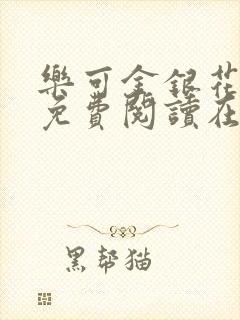 樂可金銀花
免費閱讀在
黑帮猫